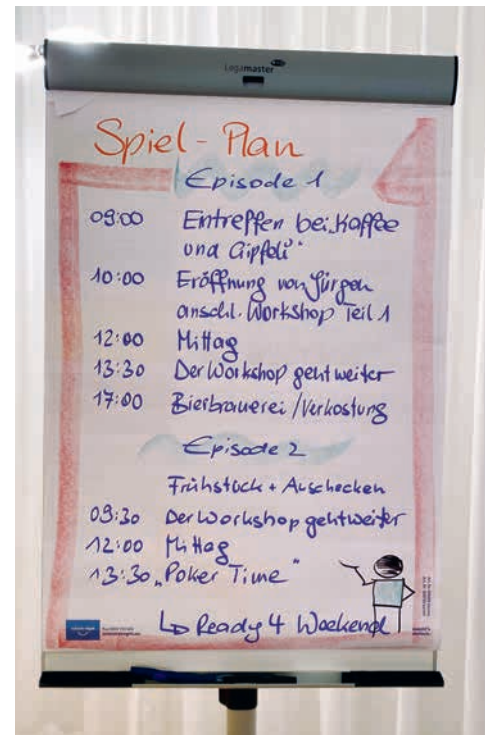 Legamaster
Spiel-Plan
Episode 1
09:00 Eintreffen bei „Kaffee
und Gipfeli"
10:00 Eröffnung von Jürgen
anschl. Workshop Teil 1
12:00 Mittag
13:30 Der Workshop geht weiter
17:00 Bierbrauerei / Verkostung
Episode 2
Frühstück + Auschecken
09:30 Der Workshop geht weiter
12:00 Mittag
13:30 „Poker Time"
↳ Ready 4 Weekend